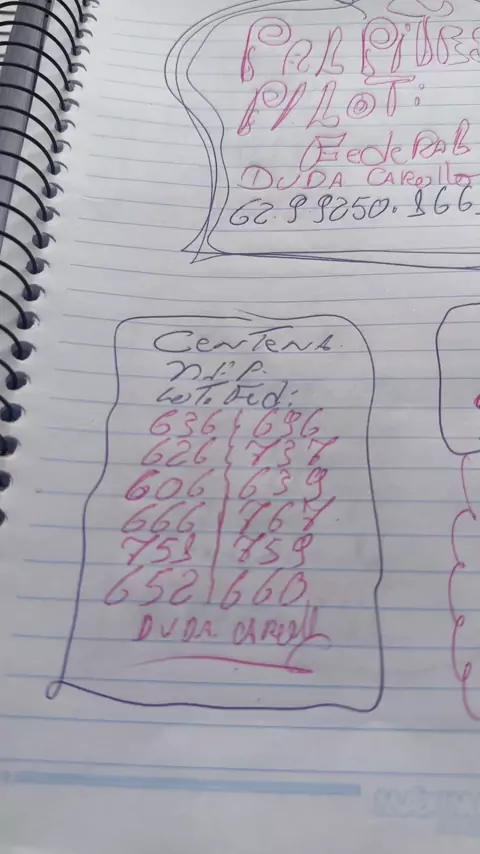 PALPITES
PILOT:
FedeRAL
DUDA CAROLLO
62.9.9250.166
CENTENA.
LOT. FED:
636 696
626 737
606 639
666 767
751 759
652 660
DUDA CAROLL